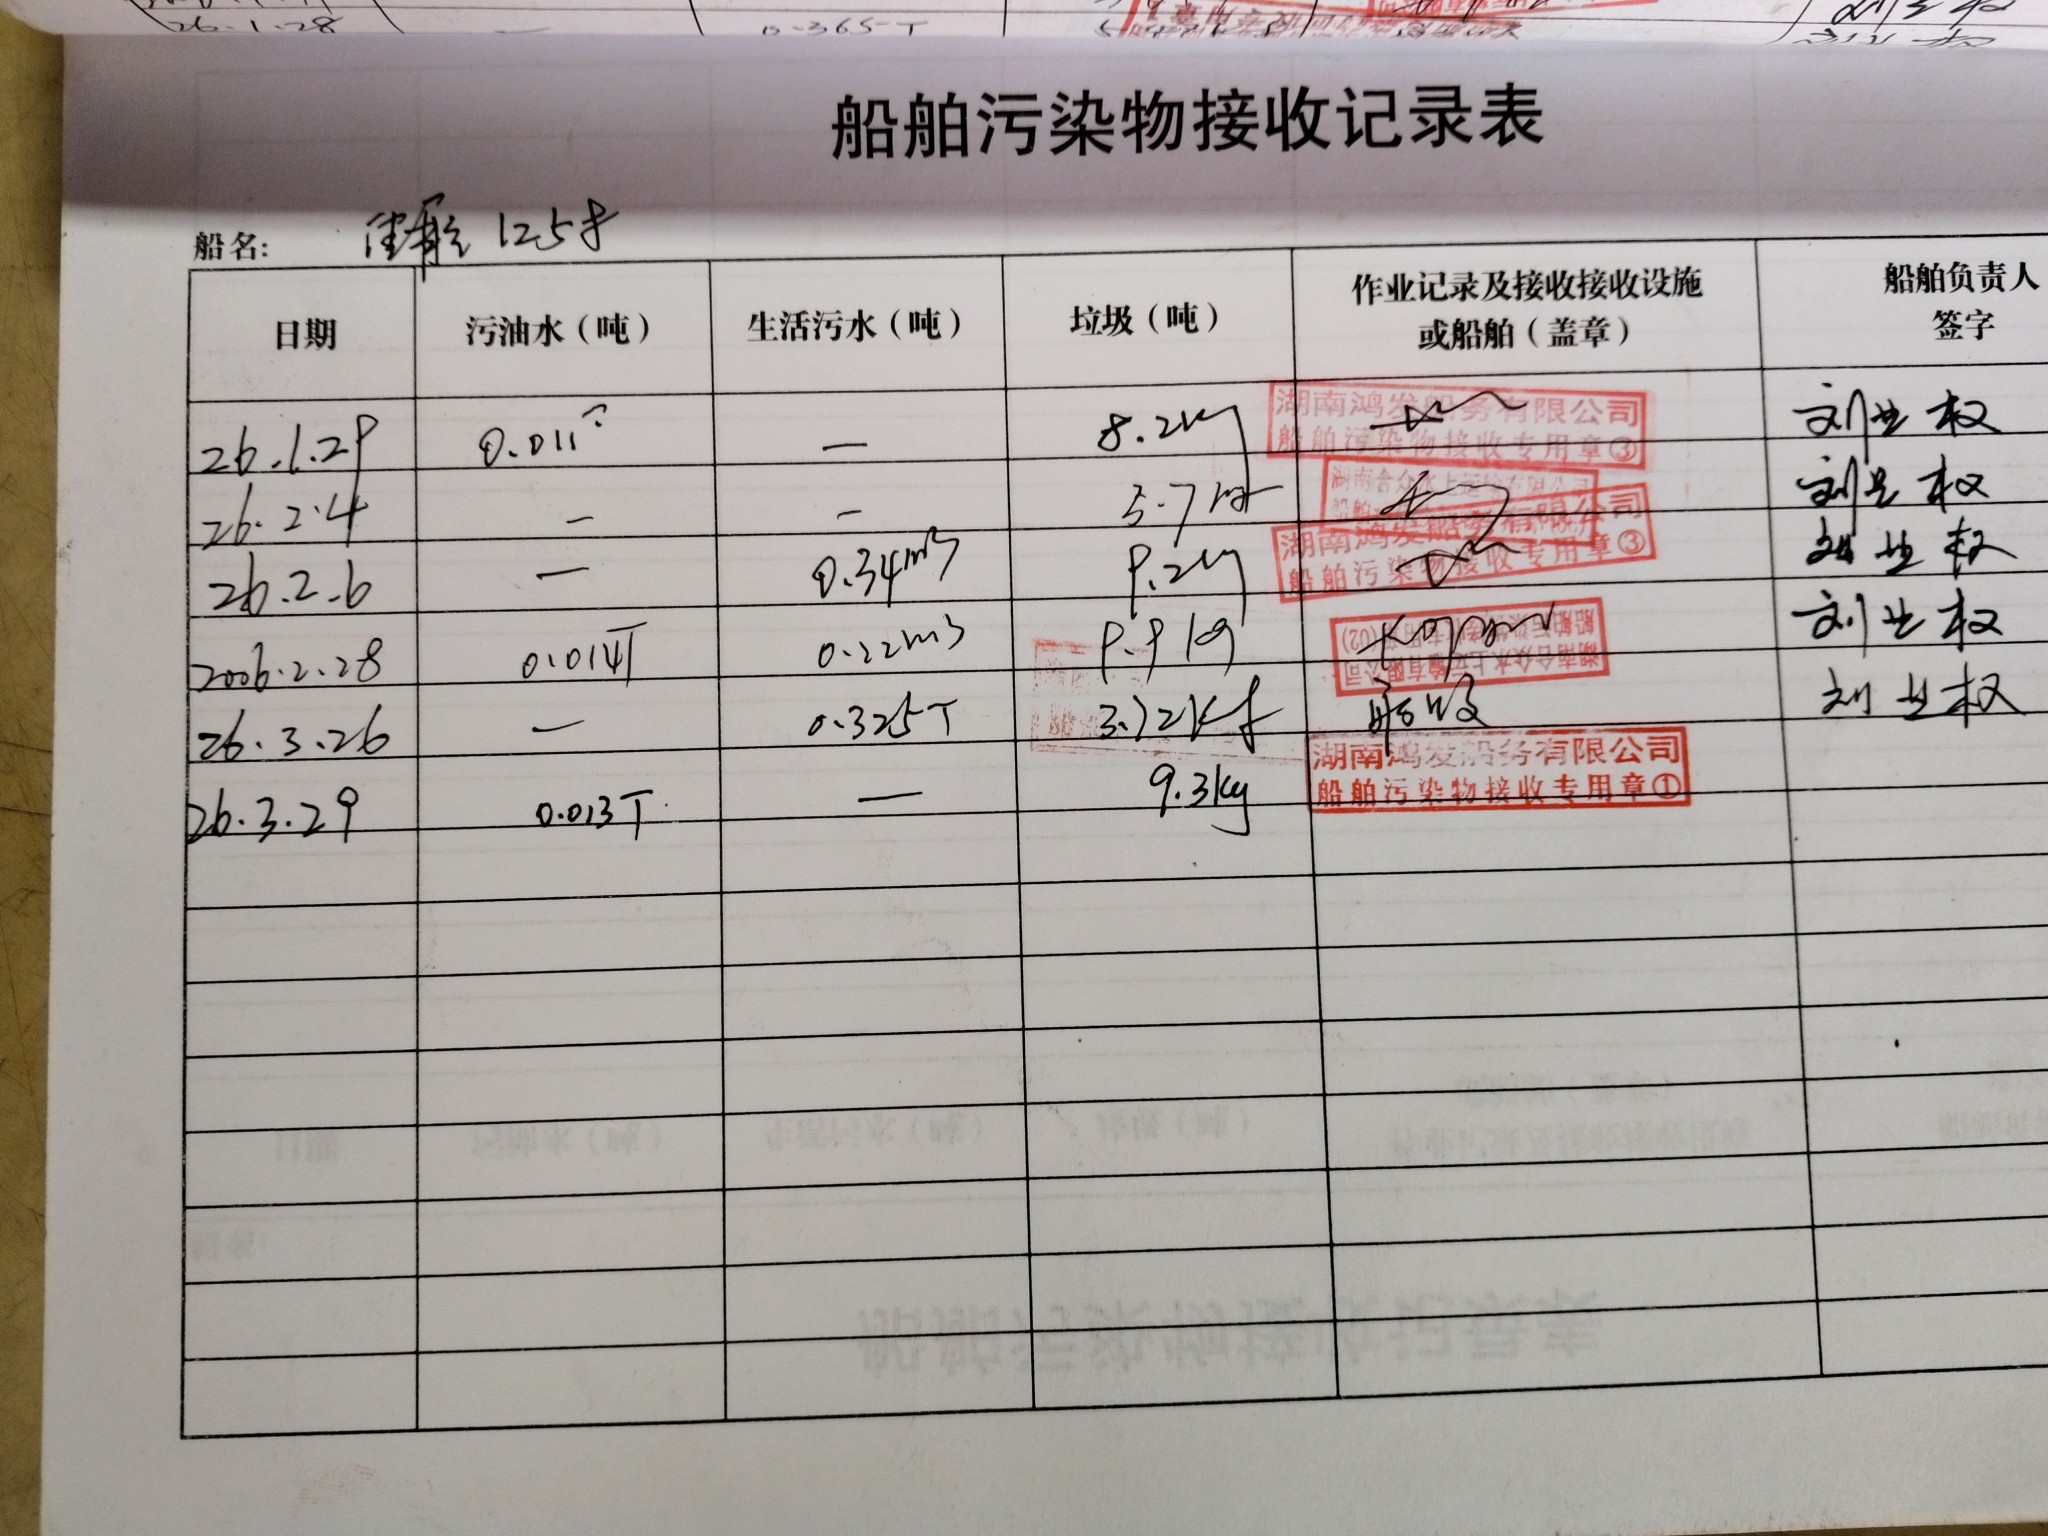 26.1.28 — 0.365T
船舶污染物接收记录表
船名: 125号
日期 污油水（吨） 生活污水（吨） 垃圾（吨） 作业记录及接收接收设施或船舶（盖章） 船舶负责人签字
26.1.29 0.011T — 8.2kg 湖南鸿发船务有限公司 船舶污染物接收专用章③ 刘业权
26.2.4 — — 3.7kg 湖南合众水上运输有限公司 刘业权
26.2.6 — 0.34m3 9.2kg 湖南鸿发船务有限公司 船舶污染物接收专用章③ 刘业权
2006.2.28 0.014T 0.22m3 9.9kg 湖南合众水上运输有限公司 刘业权
26.3.26 — 0.325T 3.72kg 刘业权
26.3.29 0.013T — 9.3kg 湖南鸿发船务有限公司 船舶污染物接收专用章①